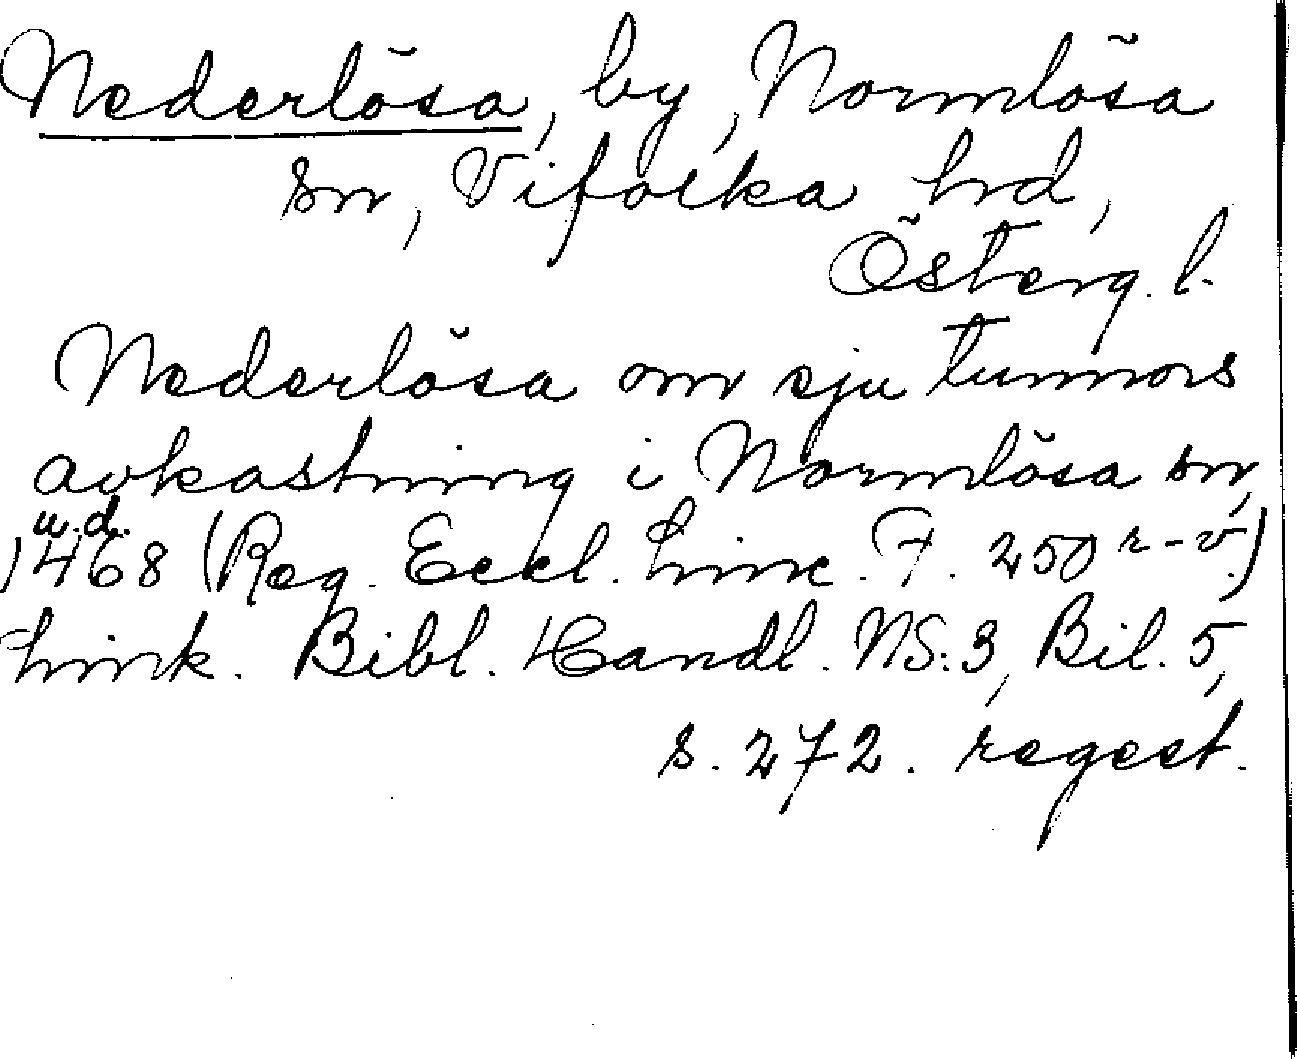 Nederlösa, by, Normlösa
sn, Vifolka hd,
Österg. l.
Nederlösa om sju tunnors
avkastning i Normlösa sn,
u.d.
1468 (Reg. Eccl. Linc. F. 250 r-v.)
Link. Bibl. Handl. NS:3, Bil. 5,
s. 272. regest.